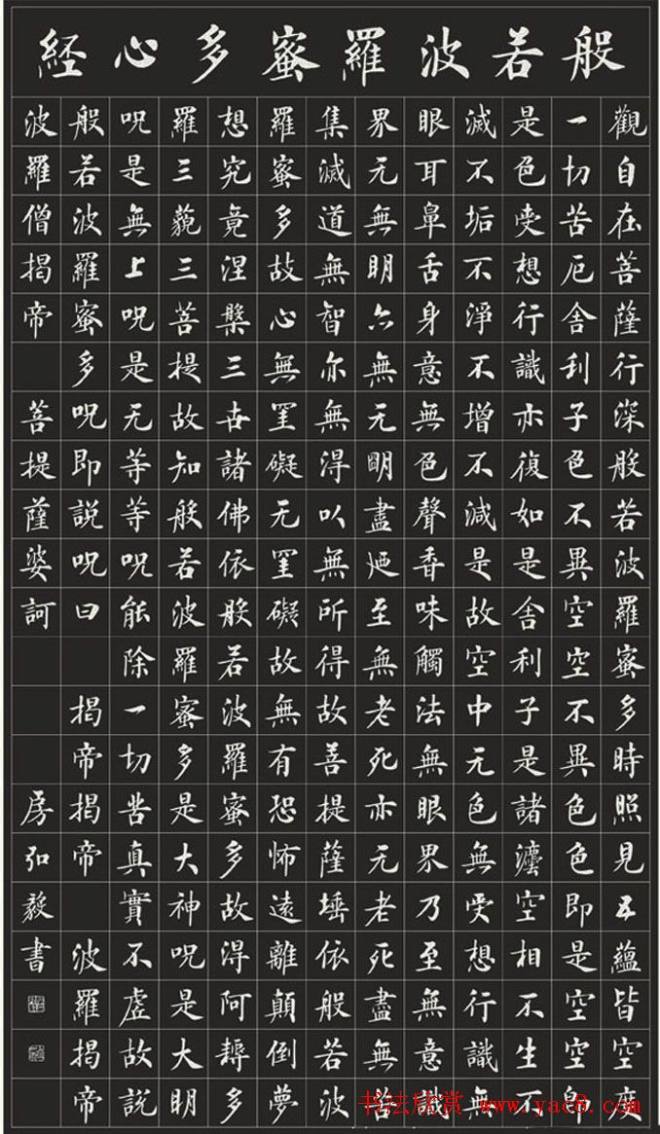 般若波羅蜜多心經
觀自在菩薩行深般若波羅蜜多時照見五蘊皆空度
一切苦厄舍利子色不異空空不異色色即是空空即
是色受想行識亦復如是舍利子是諸灋空相不生不
滅不垢不淨不增不減是故空中无色無受想行識無
眼耳鼻舌身意無色聲香味觸法無眼界乃至無意識
界无無明亦無无明盡廼至無老死亦无老死盡無苦
集滅道無智亦無得以無所得故菩提薩埵依般若波
羅蜜多故心無罣礙无罣礙故無有恐怖遠離顛倒夢
想究竟涅槃三世諸佛依般若波羅蜜多故得阿耨多
羅三藐三菩提故知般若波羅蜜多是大神咒是大明
咒是無上咒是无等等咒能除一切苦真實不虛故說
般若波羅蜜多咒即說咒曰 揭帝揭帝 波羅揭帝
波羅僧揭帝 菩提薩婆訶 房弘毅書
书法欣赏 www.yac8.com